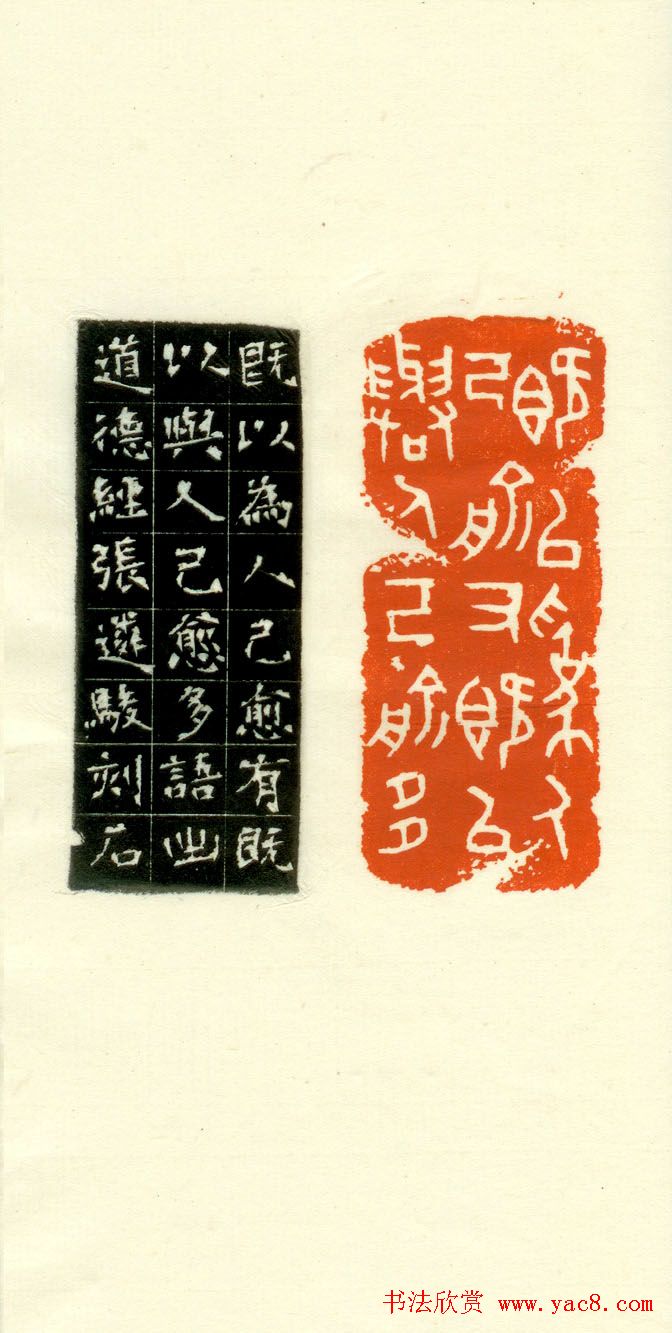 既㠯為人
己俞又既㠯
與人己俞多
既以為人己愈有既
以與人己愈多語出
道德經張遴駿刻石
书法欣赏 www.yac8.com